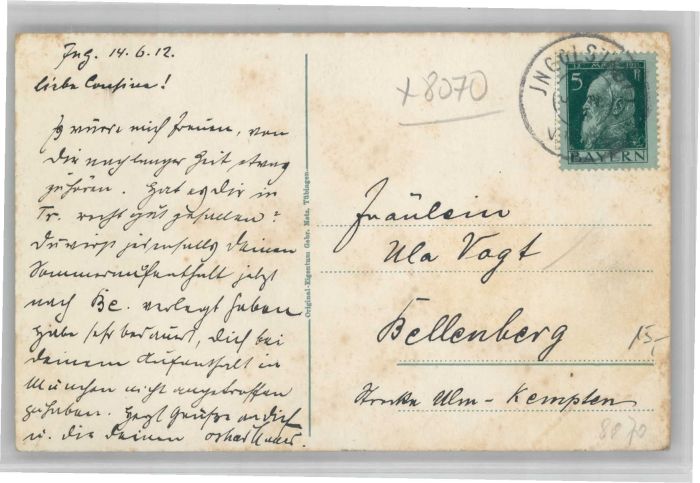 Ing. 14.6.12.
Liebe Cousine!
Es würde mich freuen, von
Dir nach langer Zeit etwas
zu hören. Hat es Dir in
Tr. recht gut gefallen?
Du wirst jedenfalls Deinen
Sommeraufenthalt jetzt
nach Be. verlegt haben
Habe sehr bedauert, Dich bei
Deinem Aufenthalt in
München nicht angetroffen
zu haben. Herzl Grüße an Dich
u. die Deinen
Original-Eigentum Gebr. Metz, Tübingen
x8070
5
BAYERN
Fräulein
Ula Vogt
Bellenberg
15,-
Strecke Ulm - Kempten
8870